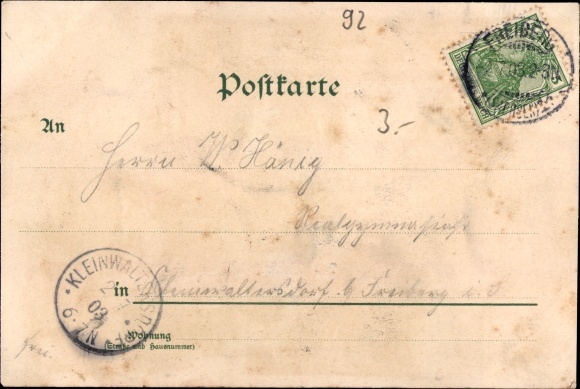 92
FREIBERG
Postkarte
An
3.-
Herrn W König
Realgymnasiast
KLEINWALTERSDORF
03
6-7N.
in Kleinwaltersdorf b Freiberg i. S
Wohnung
(Straße und Hausnummer)